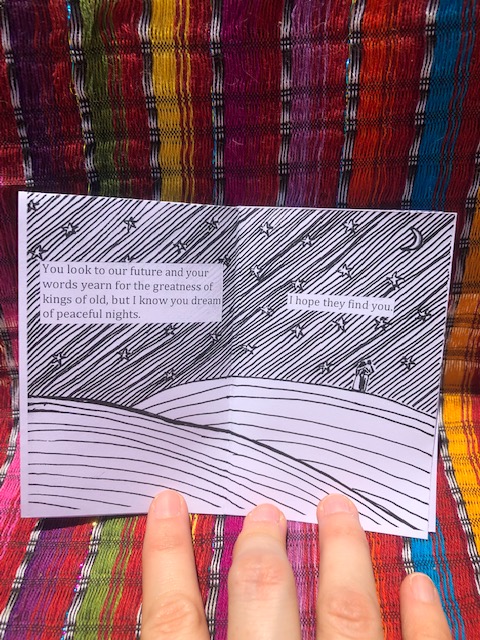 You look to our future and your
words yearn for the greatness of
kings of old, but I know you dream
of peaceful nights.
I hope they find you.